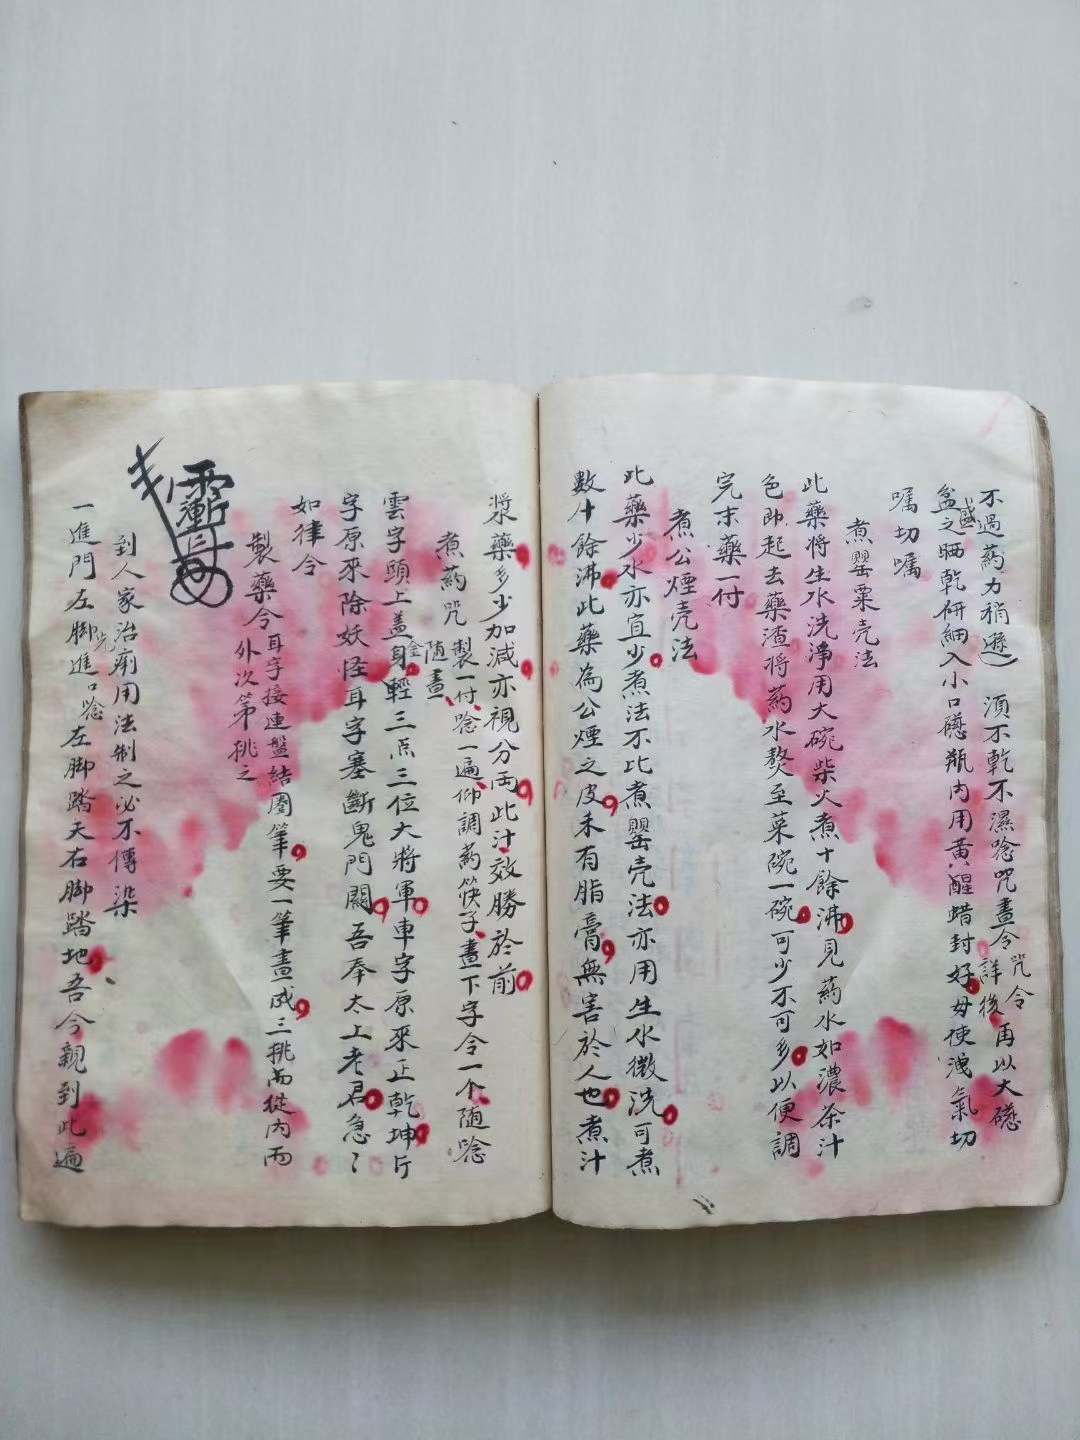 不過葯力稍遜）須不乾不濕唸咒畫令咒令詳後再以大礠
盆盛之晒乾研細入小口礠瓶内用黄醒蜡封好毋使洩氣切
嘱切嘱
煮罂粟壳法
此藥將生水洗淨用大碗柴火煮十餘沸見葯水如濃茶汁
色即起去藥渣將葯水熬至菜碗一碗可少不可多以便調
完末藥一付
煮公煙壳法
此藥少水亦宜少煮法不比煮罂壳法亦用生水微洗可煮
數十餘沸此藥為公煙之皮未有脂膏無害於人也煮汁
漿藥多少加減亦視分両此汁效勝於前
煮葯咒 製一付唸一遍仰調葯筷子畫下字令一个随唸
随畫
雲字頭上盖金身輕三点三位大將軍車字原來正乾坤斤
字原來除妖怪耳字塞斷鬼門關吾奉太上老君急〻
如律令
製藥令 耳字接連盤結圈筆要一筆畫成三挑而從内而
外次第挑之
到人家治痢用法制之必不傳染
一進門左脚先進口唸左脚踏天右脚踏地吾今親到此遍